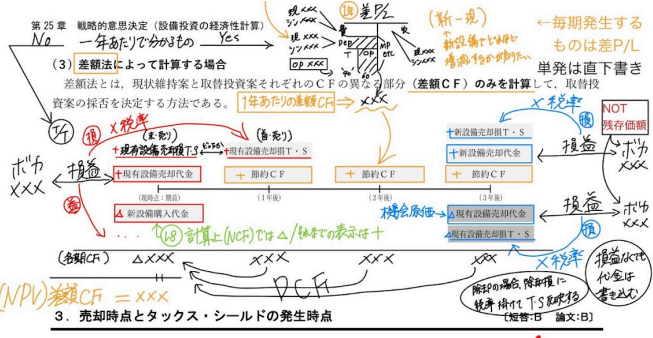 第25章　戦略的意思決定（設備投資の経済性計算）
No　一年あたりで分かるもの　Yes
差P/L
(新－現)
←毎期発生する
ものは差P/L
単発は直下書き
（3）差額法によって計算する場合
差額法とは、現状維持案と取替投資案それぞれのＣＦの異なる部分（差額ＣＦ）のみを計算して、取替投
資案の採否を決定する方法である。
1年あたりの差額CF⇒ xxx
NOT
残存価額
×税率
×税率
+現有設備売却損T・S
+現有設備売却損Ｔ・Ｓ
+新設備売却損Ｔ・Ｓ
+新設備売却代金
ボカ
xxx
損益
+現有設備売却代金
+ 節約ＣＦ
+ 節約ＣＦ
+ 節約ＣＦ
損益
ボカ
xxx
（現時点：期首）
（1年後）
（2年後）
（3年後）
△新設備購入代金
機会原価
△現有設備売却代金
△現有設備売却損Ｔ・Ｓ
損益
ボカ
xxx
×税率
計算上(NCF)では△/それまでの表示は＋
(各期CF) △xxx　xxx　xxx　xxx
DCF
(NPV)差額CF = xxx
除却の場合、除却損に
税率掛けてT・Sを反映する
損益なくても
代金は
書き込む
3．売却時点とタックス・シールドの発生時点
〔短答：B　論文：B〕